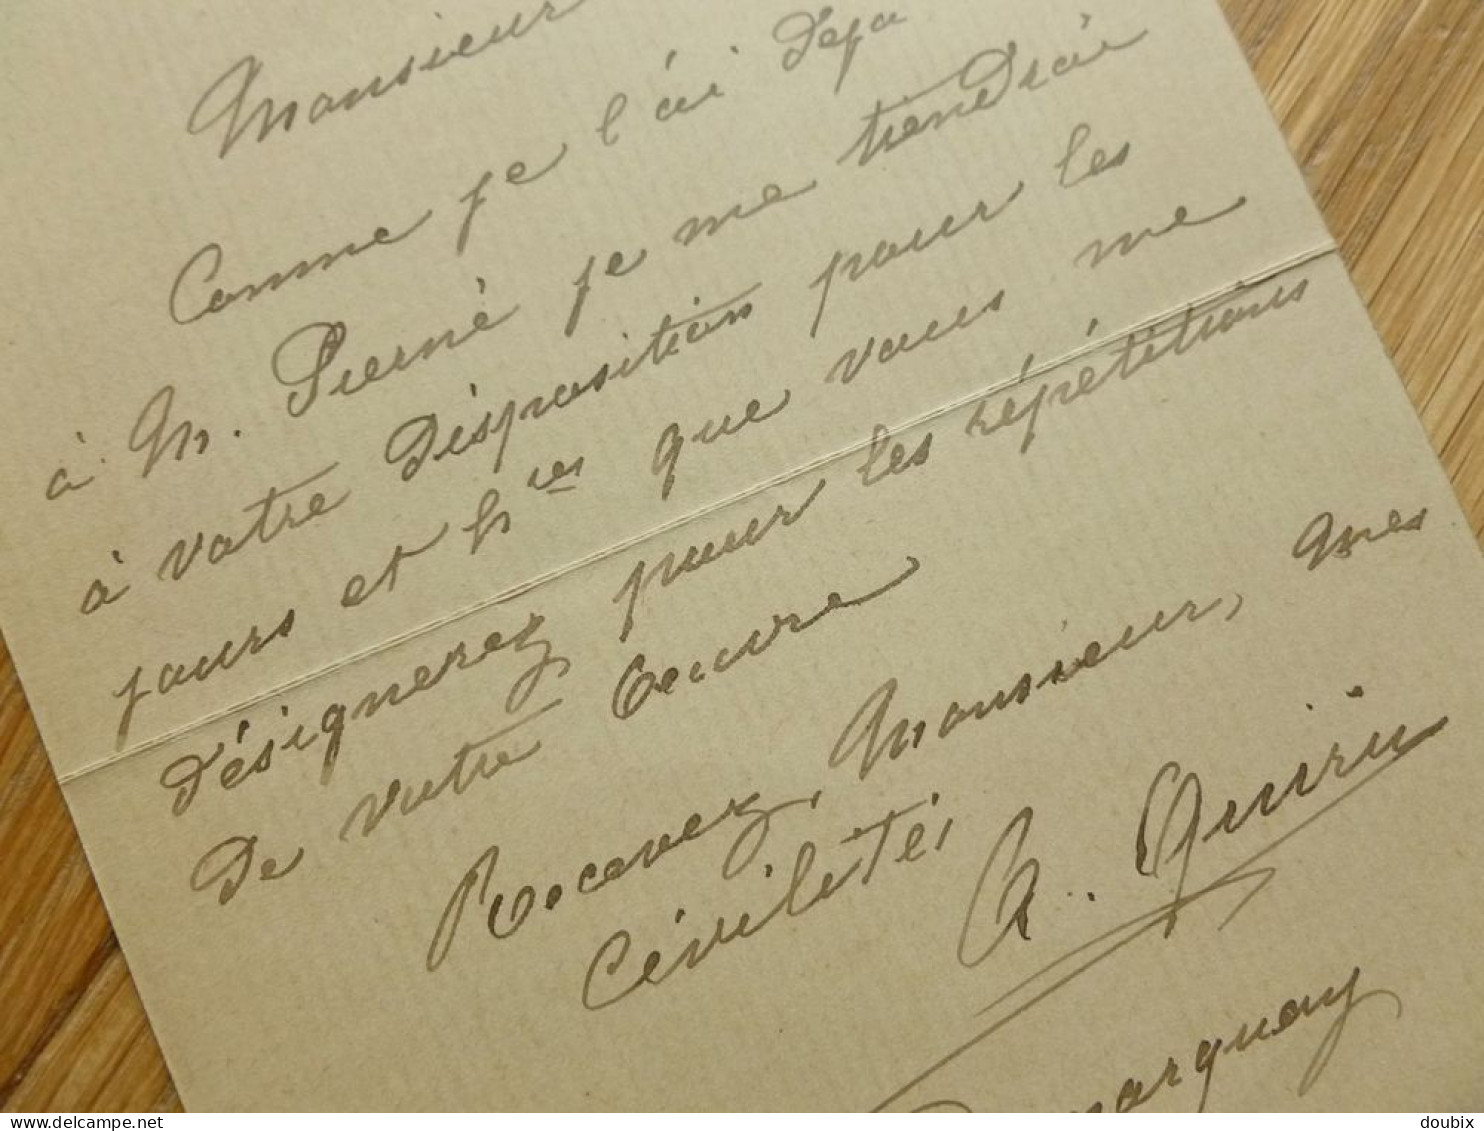 Monsieur
Comme je l'ai déjà
à M. Pierné je me tiendrai
à votre disposition pour les
jours et h.res que vous me
désignerez pour les répétitions
de votre Oeuvre
Recevez, Monsieur, mes
Civilités
A. Quirin
Marquay
delcampe.net
doubix